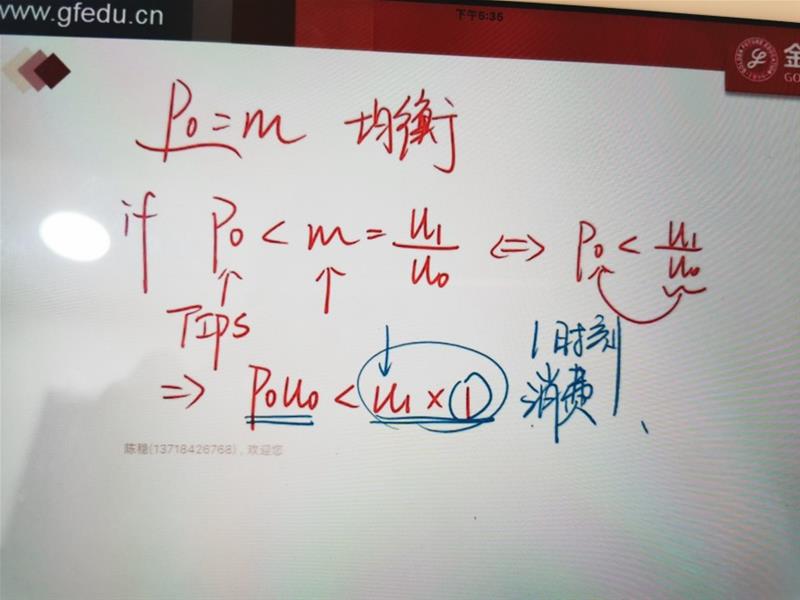 www.gfedu.cn
下午5:35
金
GO
P₀=m 均衡
if P₀ < m = u₁/u₀ ⇔ P₀ < u₁/u₀
TIPS
1时刻
⇒ P₀u₀ < u₁ × ① 消费
陈稳(13718426768)，欢迎您